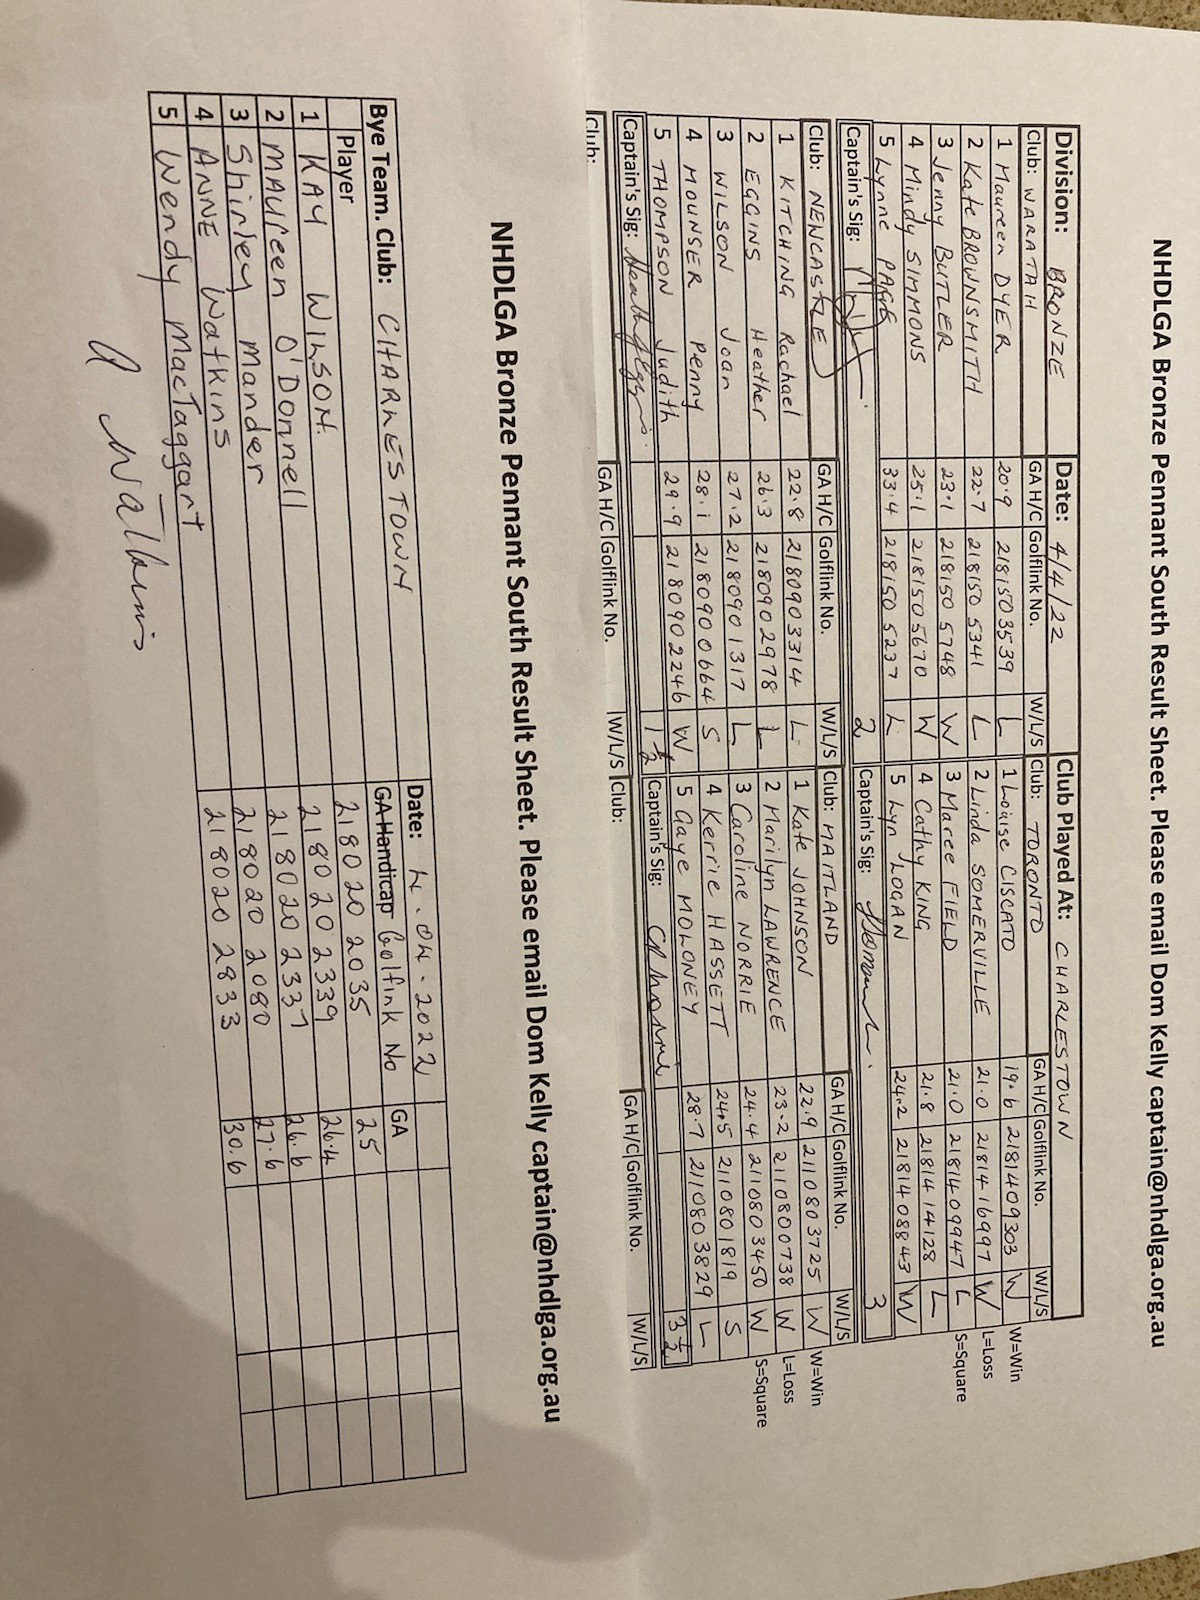 NHDLGA Bronze Pennant South Result Sheet. Please email Dom Kelly captain@nhdlga.org.au
Division: BRONZE Date: 4/4/22 Club Played At: CHARLESTOWN
Club: WARATAH GA H/C Golflink No. W/L/S Club: TORONTO GA H/C Golflink No. W/L/S
1 Maureen DYER 20.9 2181503539 L 1 Louise CISCATO 19.6 2181409303 W W=Win
2 Kate BROWNSMITH 22.7 218150 5341 L 2 Linda SOMERVILLE 21.0 2181416997 W L=Loss
3 Jenny BUTLER 23.1 218150 5748 W 3 Maree FIELD 21.0 2181409947 L S=Square
4 Mindy SIMMONS 25.1 2181505670 W 4 Cathy KING 21.8 2181414128 L
5 Lynne PAGE 33.4 218150 5237 L 5 Lyn LOGAN 24.2 2181408843 W
Captain's Sig: 2 Captain's Sig: 3
Club: NEWCASTLE GA H/C Golflink No. W/L/S Club: MAITLAND GA H/C Golflink No. W/L/S
1 KITCHING Rachael 22.8 2180903314 L 1 Kate JOHNSON 22.9 2110803725 W W=Win
2 EGGINS Heather 26.3 2180902978 L 2 Marilyn LAWRENCE 23.2 2110800738 W L=Loss
3 WILSON Joan 27.2 2180901317 L 3 Caroline NORRIE 24.4 2110803450 W S=Square
4 MOUNSER Penny 28.1 2180900664 S 4 Kerrie HASSETT 24.5 2110801819 S
5 THOMPSON Judith 29.9 2180902246 W 5 Gaye MOLONEY 28.7 2110803829 L
Captain's Sig: 1½ Captain's Sig: 3½
Club: GA H/C Golflink No. W/L/S Club: GA H/C Golflink No. W/L/S
NHDLGA Bronze Pennant South Result Sheet. Please email Dom Kelly captain@nhdlga.org.au
Bye Team. Club: CHARLESTOWN Date: 4.04.2022
Player GA Handicap Golfink No GA
1 KAY WILSON. 21802 02035 25
2 MAUREEN O'Donnell 21802 02339 26.4
3 Shirley Mander 21802 02337 26.6
4 ANNE Watkins 218020 2080 27.6
5 Wendy MacTaggart 218020 2833 30.6
A Watkins